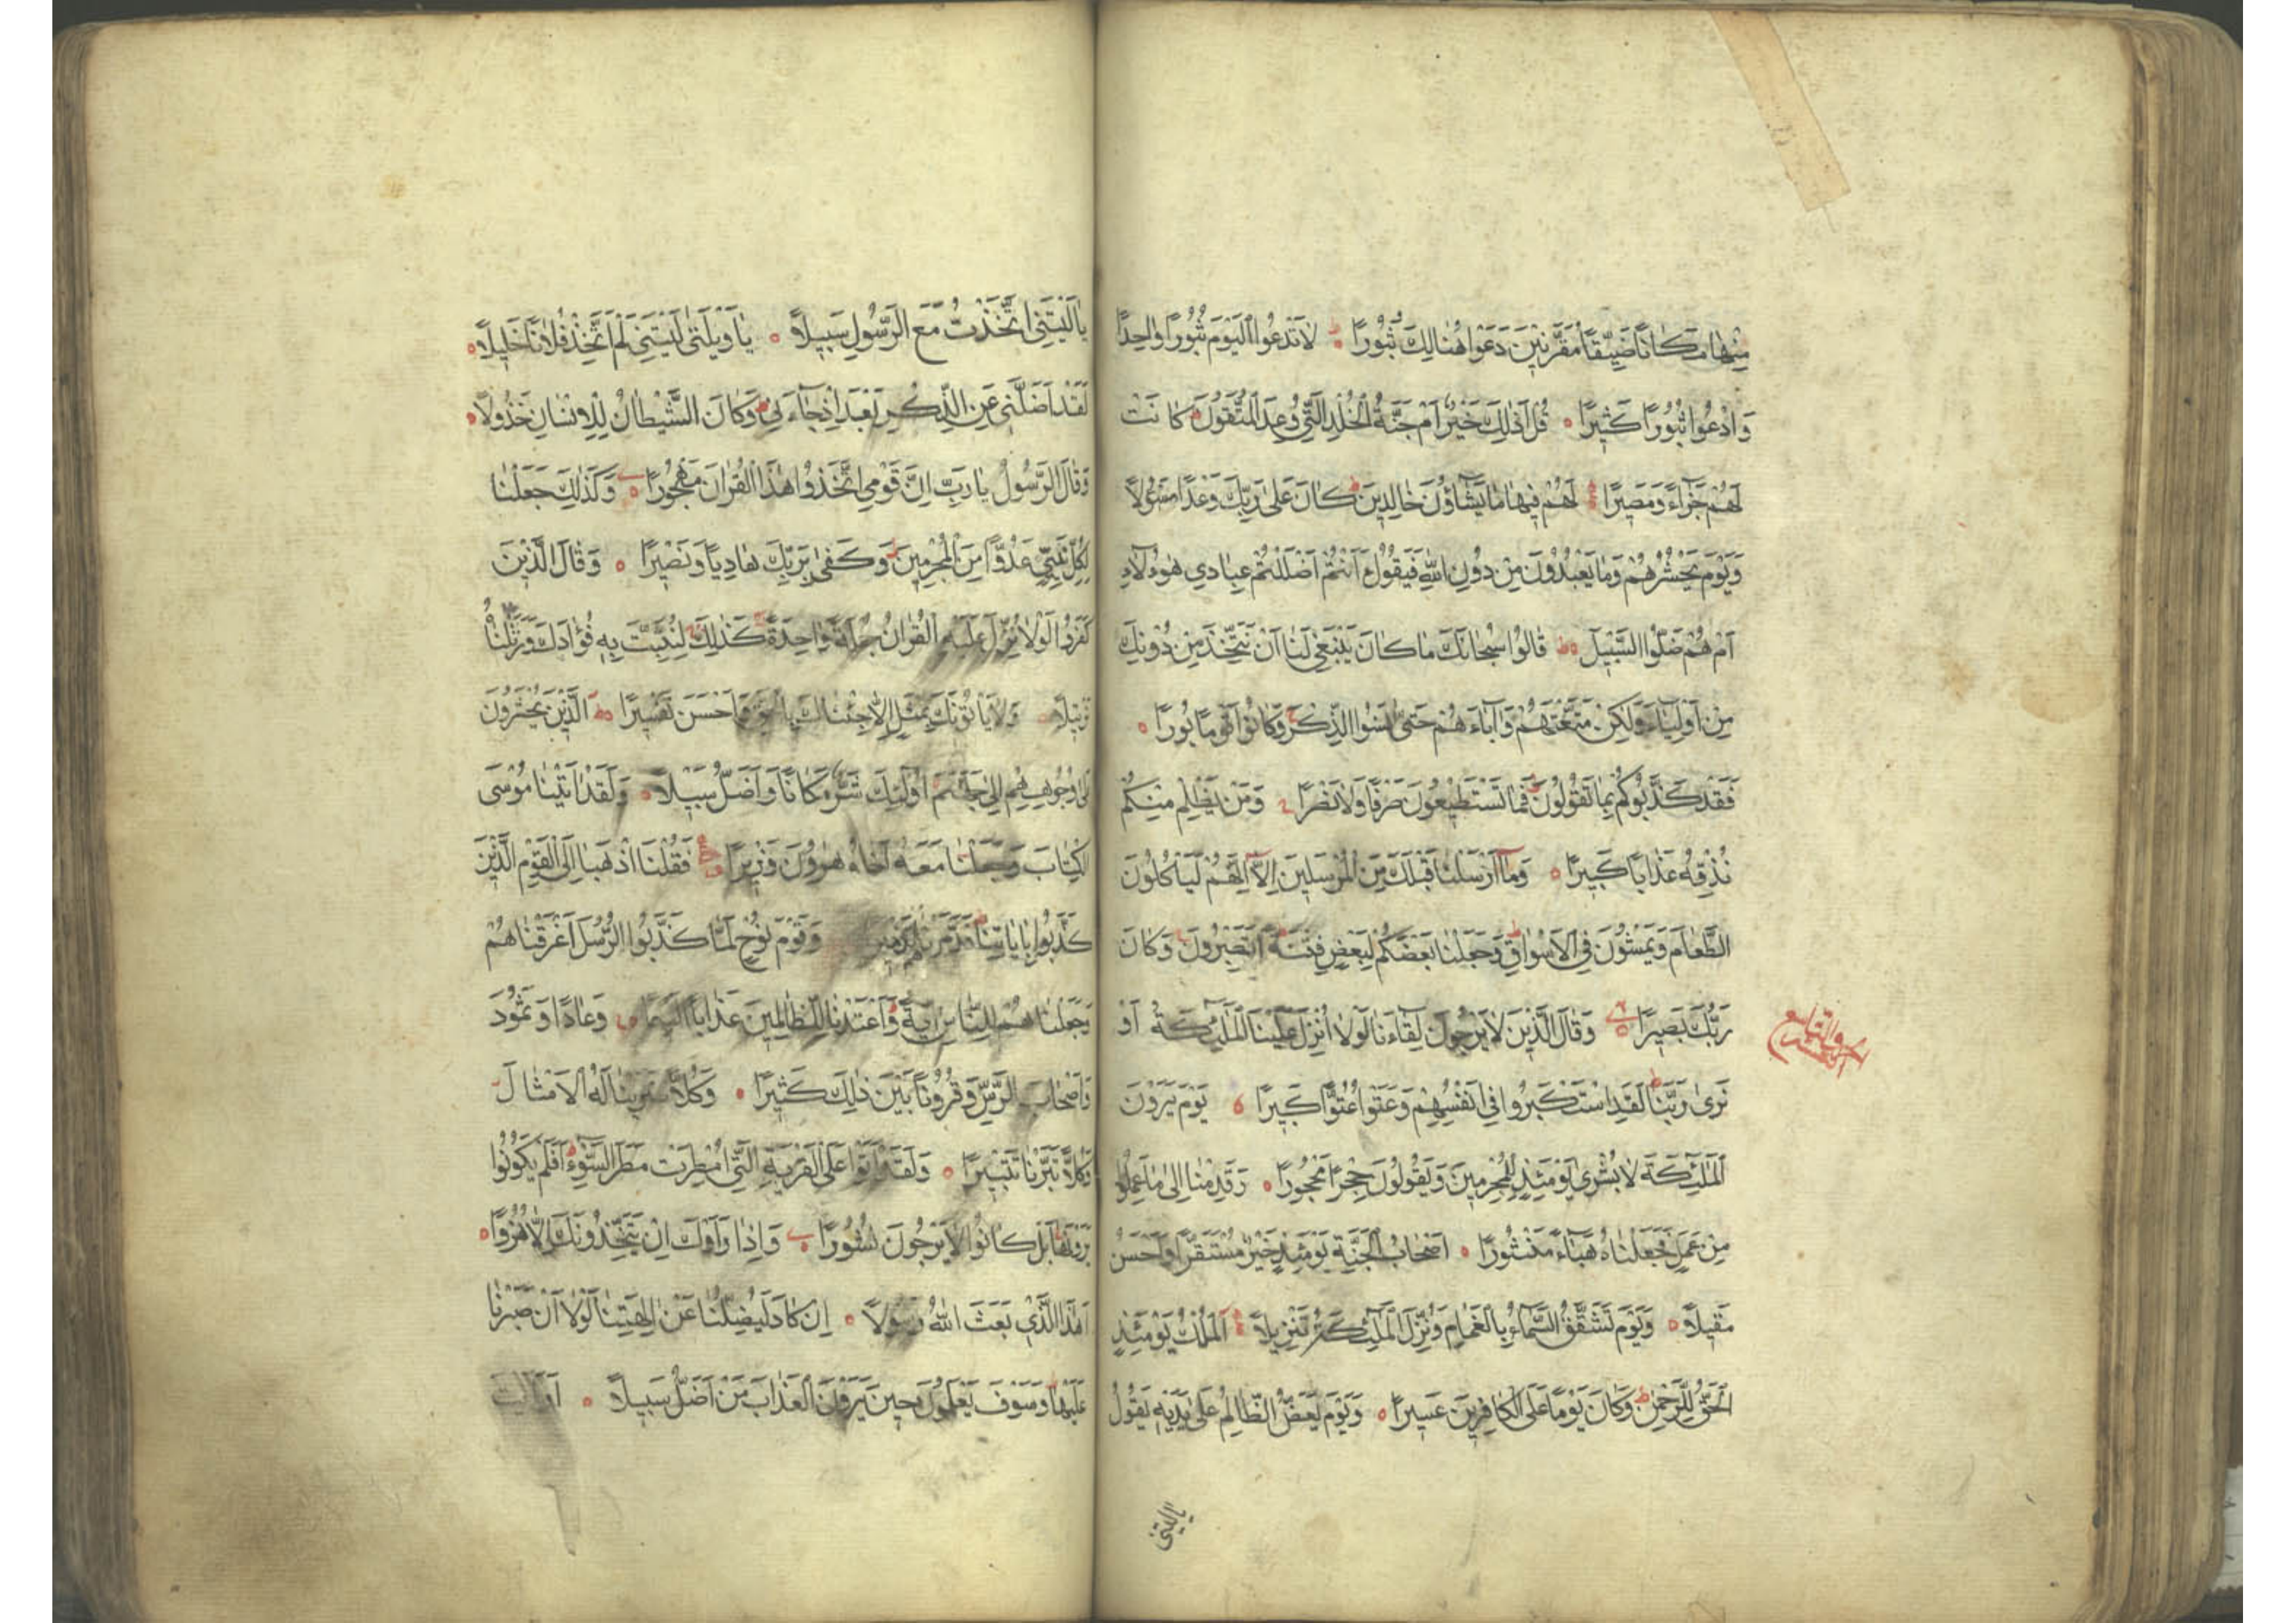 مِنْهَا مَكَانًا ضَيِّقًا مُقَرَّنِينَ دَعَوْا هُنَالِكَ ثُبُورًا لَا تَدْعُوا الْيَوْمَ ثُبُورًا وَاحِدًا
وَادْعُوا ثُبُورًا كَثِيرًا قُلْ أَذٰلِكَ خَيْرٌ أَمْ جَنَّةُ الْخُلْدِ الَّتِي وُعِدَ الْمُتَّقُونَ كَانَتْ
لَهُمْ جَزَاءً وَمَصِيرًا لَهُمْ فِيهَا مَا يَشَاؤُنَ خَالِدِينَ كَانَ عَلَى رَبِّكَ وَعْدًا مَسْئُولًا
وَيَوْمَ يَحْشُرُهُمْ وَمَا يَعْبُدُونَ مِنْ دُونِ اللهِ فَيَقُولُ أَأَنْتُمْ أَضْلَلْتُمْ عِبَادِي هٰؤُلَاءِ
أَمْ هُمْ ضَلُّوا السَّبِيلَ قَالُوا سُبْحَانَكَ مَا كَانَ يَنْبَغِي لَنَا أَنْ نَتَّخِذَ مِنْ دُونِكَ
مِنْ أَوْلِيَاءَ وَلٰكِنْ مَتَّعْتَهُمْ وَآبَاءَهُمْ حَتَّى نَسُوا الذِّكْرَ وَكَانُوا قَوْمًا بُورًا
فَقَدْ كَذَّبُوكُمْ بِمَا تَقُولُونَ فَمَا تَسْتَطِيعُونَ صَرْفًا وَلَا نَصْرًا وَمَنْ يَظْلِمْ مِنْكُمْ
نُذِقْهُ عَذَابًا كَبِيرًا وَمَا أَرْسَلْنَا قَبْلَكَ مِنَ الْمُرْسَلِينَ إِلَّا إِنَّهُمْ لَيَأْكُلُونَ
الطَّعَامَ وَيَمْشُونَ فِي الْأَسْوَاقِ وَجَعَلْنَا بَعْضَكُمْ لِبَعْضٍ فِتْنَةً أَتَصْبِرُونَ وَكَانَ
رَبُّكَ بَصِيرًا وَقَالَ الَّذِينَ لَا يَرْجُونَ لِقَاءَنَا لَوْلَا أُنْزِلَ عَلَيْنَا الْمَلٰئِكَةُ أَوْ
نَرَى رَبَّنَا لَقَدِ اسْتَكْبَرُوا فِي أَنْفُسِهِمْ وَعَتَوْا عُتُوًّا كَبِيرًا يَوْمَ يَرَوْنَ
الْمَلٰئِكَةَ لَا بُشْرَى يَوْمَئِذٍ لِلْمُجْرِمِينَ وَيَقُولُونَ حِجْرًا مَحْجُورًا وَقَدِمْنَا إِلَى مَا عَمِلُوا
مِنْ عَمَلٍ فَجَعَلْنَاهُ هَبَاءً مَنْثُورًا أَصْحَابُ الْجَنَّةِ يَوْمَئِذٍ خَيْرٌ مُسْتَقَرًّا وَأَحْسَنُ
مَقِيلًا وَيَوْمَ تَشَقَّقُ السَّمَاءُ بِالْغَمَامِ وَنُزِّلَ الْمَلٰئِكَةُ تَنْزِيلًا الْمُلْكُ يَوْمَئِذٍ
الْحَقُّ لِلرَّحْمٰنِ وَكَانَ يَوْمًا عَلَى الْكَافِرِينَ عَسِيرًا وَيَوْمَ يَعَضُّ الظَّالِمُ عَلَى يَدَيْهِ يَقُولُ
يا ليتني
يَا لَيْتَنِي اتَّخَذْتُ مَعَ الرَّسُولِ سَبِيلًا يَا وَيْلَتَى لَيْتَنِي لَمْ أَتَّخِذْ فُلَانًا خَلِيلًا
لَقَدْ أَضَلَّنِي عَنِ الذِّكْرِ بَعْدَ إِذْ جَاءَنِي وَكَانَ الشَّيْطَانُ لِلْإِنْسَانِ خَذُولًا
وَقَالَ الرَّسُولُ يَا رَبِّ إِنَّ قَوْمِي اتَّخَذُوا هٰذَا الْقُرْاٰنَ مَهْجُورًا وَكَذٰلِكَ جَعَلْنَا
لِكُلِّ نَبِيٍّ عَدُوًّا مِنَ الْمُجْرِمِينَ وَكَفَى بِرَبِّكَ هَادِيًا وَنَصِيرًا وَقَالَ الَّذِينَ
كَفَرُوا لَوْلَا نُزِّلَ عَلَيْهِ الْقُرْاٰنُ جُمْلَةً وَاحِدَةً كَذٰلِكَ لِنُثَبِّتَ بِهِ فُؤَادَكَ وَرَتَّلْنَاهُ
تَرْتِيلًا وَلَا يَأْتُونَكَ بِمَثَلٍ إِلَّا جِئْنَاكَ بِالْحَقِّ وَأَحْسَنَ تَفْسِيرًا الَّذِينَ يُحْشَرُونَ
عَلَى وُجُوهِهِمْ إِلَى جَهَنَّمَ أُولٰئِكَ شَرٌّ مَكَانًا وَأَضَلُّ سَبِيلًا وَلَقَدْ اٰتَيْنَا مُوسَى
الْكِتَابَ وَجَعَلْنَا مَعَهُ أَخَاهُ هٰرُونَ وَزِيرًا فَقُلْنَا اذْهَبَا إِلَى الْقَوْمِ الَّذِينَ
كَذَّبُوا بِاٰيَاتِنَا فَدَمَّرْنَاهُمْ تَدْمِيرًا وَقَوْمَ نُوحٍ لَمَّا كَذَّبُوا الرُّسُلَ أَغْرَقْنَاهُمْ
وَجَعَلْنَاهُمْ لِلنَّاسِ اٰيَةً وَأَعْتَدْنَا لِلظَّالِمِينَ عَذَابًا أَلِيمًا وَعَادًا وَثَمُودَ
وَأَصْحَابَ الرَّسِّ وَقُرُونًا بَيْنَ ذٰلِكَ كَثِيرًا وَكُلًّا ضَرَبْنَا لَهُ الْأَمْثَالَ
وَكُلًّا تَبَّرْنَا تَتْبِيرًا وَلَقَدْ أَتَوْا عَلَى الْقَرْيَةِ الَّتِي أُمْطِرَتْ مَطَرَ السَّوْءِ أَفَلَمْ يَكُونُوا
يَرَوْنَهَا بَلْ كَانُوا لَا يَرْجُونَ نُشُورًا وَإِذَا رَأَوْكَ إِنْ يَتَّخِذُونَكَ إِلَّا هُزُوًا
أَهٰذَا الَّذِي بَعَثَ اللهُ رَسُولًا إِنْ كَادَ لَيُضِلُّنَا عَنْ اٰلِهَتِنَا لَوْلَا أَنْ صَبَرْنَا
عَلَيْهَا وَسَوْفَ يَعْلَمُونَ حِينَ يَرَوْنَ الْعَذَابَ مَنْ أَضَلُّ سَبِيلًا أَرَأَيْتَ